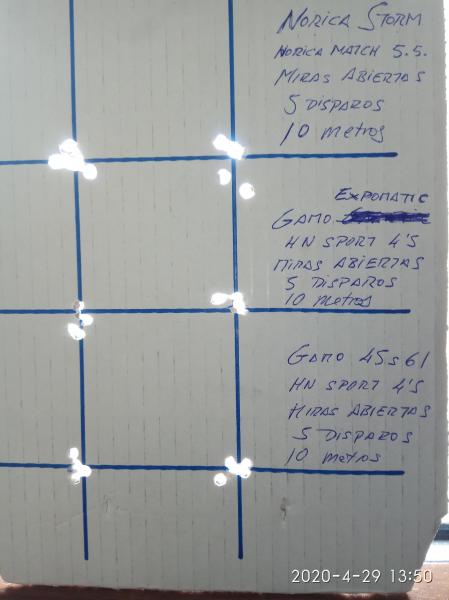 NORICA STORM
NORICA MATCH 5.5.
MIRAS ABIERTAS
5 DISPAROS
10 metros
EXPOMATIC
GAMO
HN SPORT 4'5
MIRAS ABIERTAS
5 DISPAROS
10 metros
GAMO 45s61
HN SPORT 4'5
MIRAS ABIERTAS
5 DISPAROS
10 metros
2020-4-29 13:50